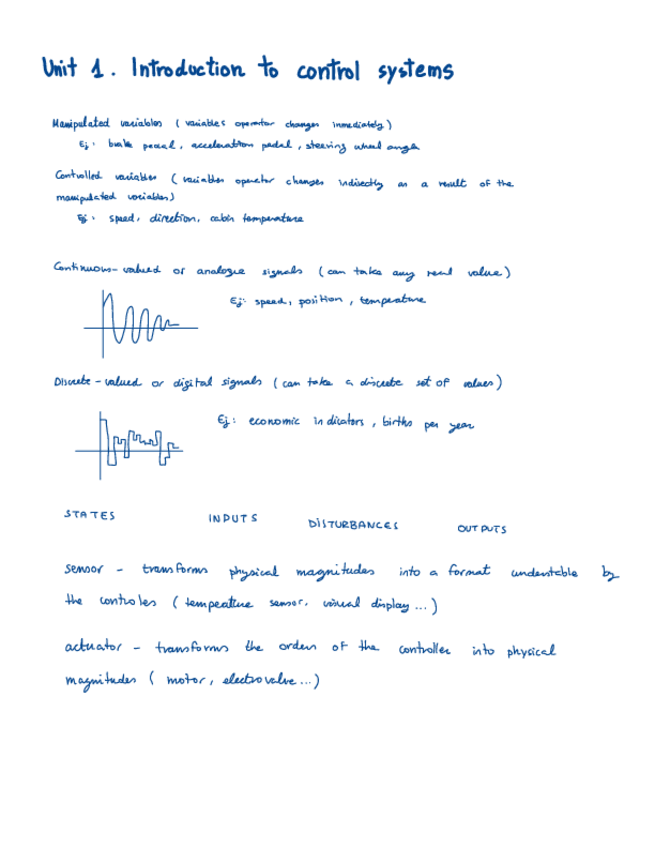 Unit 1. Introduction to control systems
Manipulated variables (variables operator changes inmediately)
Ej: brake pedal, acceleration pedal, steering wheel angle
Controlled variables (variables operator changes indirectly as a result of the
manipulated variables)
Ej: speed, direction, cabin temperature
Continuous-valued or analogue signals (can take any real value)
Ej: speed, position, temperature
Discrete-valued or digital signals (can take a discrete set of values)
Ej: economic indicators, births per year
STATES INPUTS DISTURBANCES OUTPUTS
sensor - transforms physical magnitudes into a format understable by
the controles (temperature sensor, visual display...)
actuator - transforms the orders of the controller into physical
magnitudes (motor, electrovalve...)